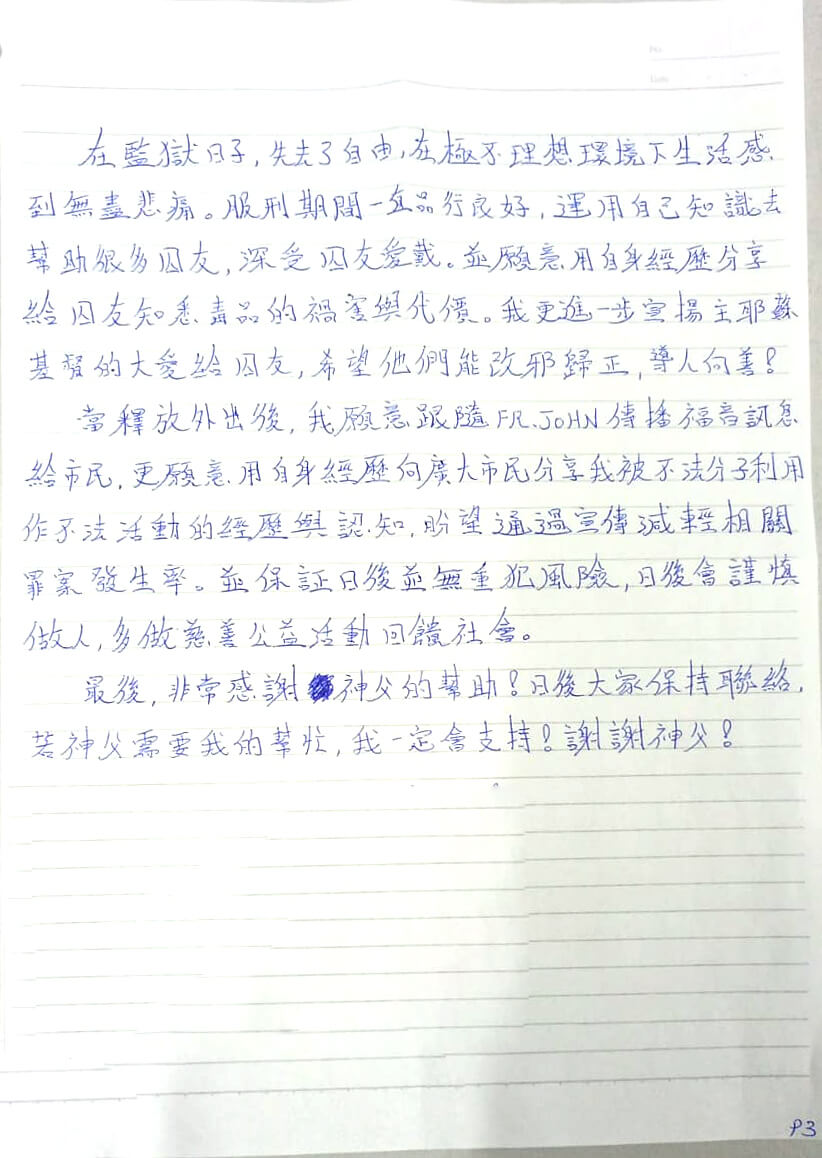 No.
Date
在監獄日子,失去了自由,在極不理想環境下生活感
到無盡悲痛。服刑期間一直品行良好,運用自己知識去
幫助很多囚友,深受囚友愛戴。並願意用自身經歷分享
給囚友知悉毒品的禍害與代價。我更進一步宣揚主耶穌
基督的大愛給囚友,希望他們能改邪歸正,導人向善!
當釋放外出後,我願意跟隨FR.JOHN傳播福音訊息
給市民,更願意用自身經歷向廣大市民分享我被不法分子利用
作不法活動的經歷與認知,盼望通過宣傳減輕相關
罪案發生率。並保証日後並無重犯風險,日後會謹慎
做人,多做慈善公益活動回饋社會。
最後,非常感謝神父的幫助!日後大家保持聯絡,
若神父需要我的幫忙,我一定會支持!謝謝神父!
P3